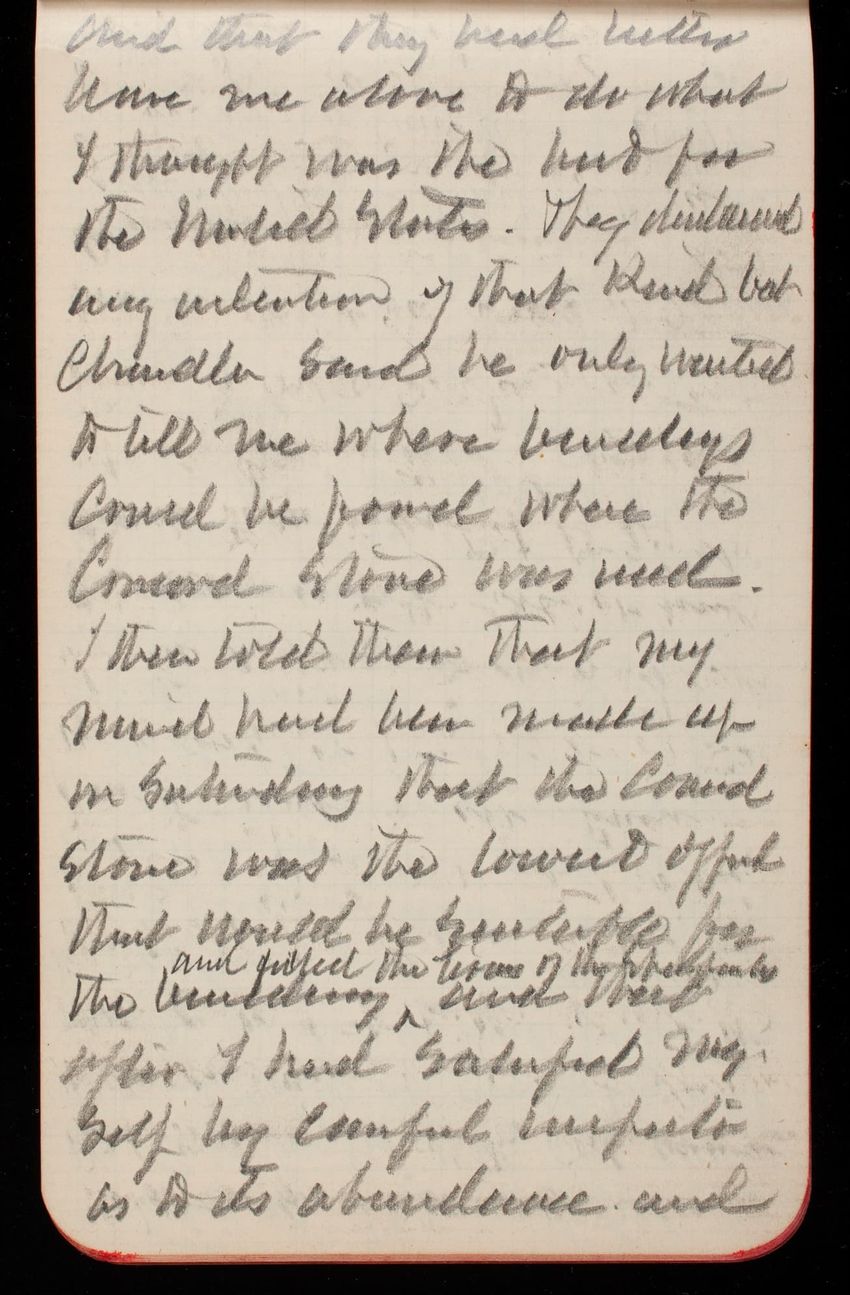 and that they had better
leave me alone to do what
I thought was the best for
the United States. They disclaimed
any intention of that Kind but
Chandler Said he only wanted
to tell me where buildings
Could be found where the
Concord Stone was used.
I then told them that my
mind had been made up
on Saturday that the Concord
Stone was the lowest offered
that would be Suitable for
and filled the terms of the
the building ^ and that
after I had Satisfied my
Self by Careful inspectio
as to its abundance and